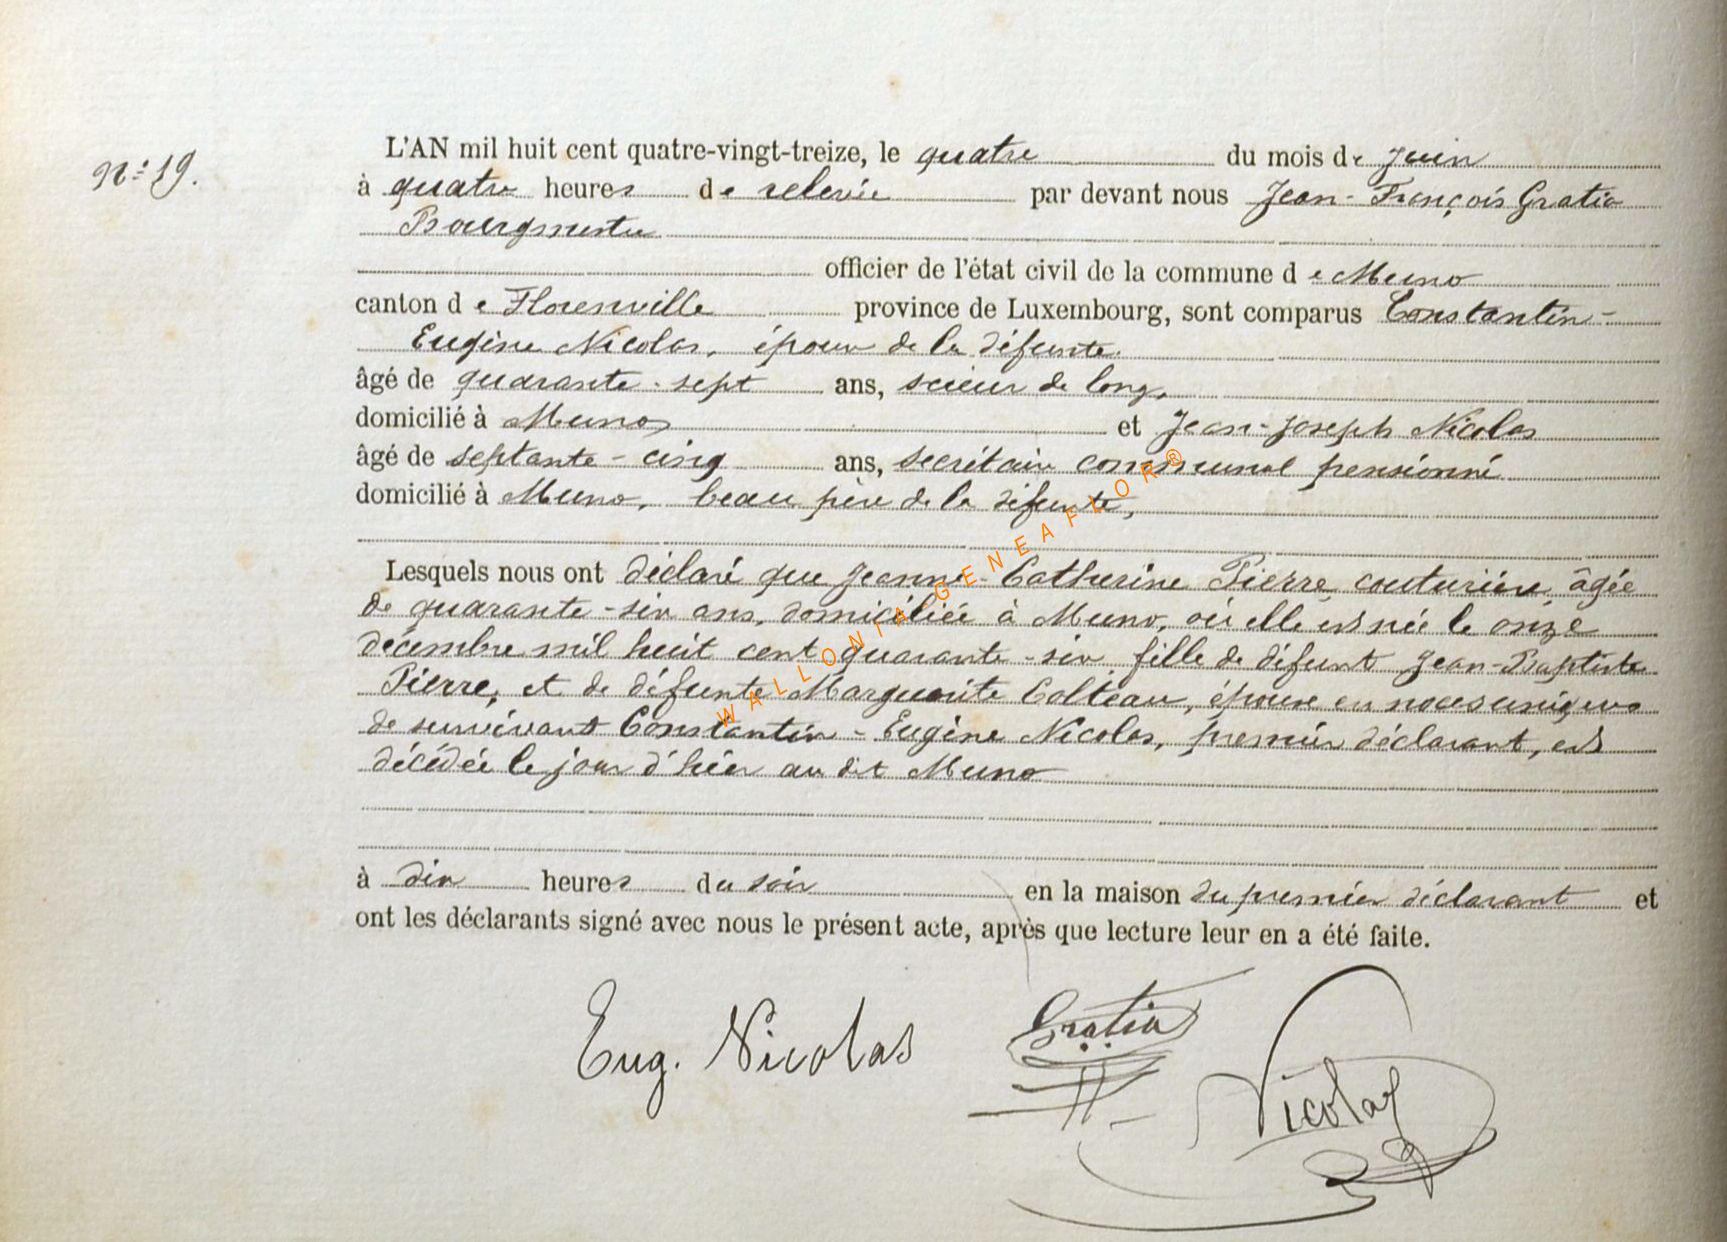 N° 19.
L'AN mil huit cent quatre-vingt-treize, le quatre du mois de Juin
à quatre heures de relevée par devant nous Jean-François Gratia
Bourgmestre
officier de l'état civil de la commune de Muno
canton de Florenville province de Luxembourg, sont comparus Constantin-
Eugène Nicolas, époux de la défunte.
âgé de quarante-sept ans, scieur de long,
domicilié à Muno et Jean-Joseph Nicolas
âgé de septante-cinq ans, secrétaire communal pensionné
domicilié à Muno, beau père de la défunte,
Lesquels nous ont déclaré que Jeanne-Catherine Pierre, couturière, âgée
de quarante-six ans, domiciliée à Muno, où elle est née le onze
décembre mil huit cent quarante-six fille de défunt Jean-Baptiste
Pierre, et de défunte Marguerite Colteau, épouse en noces uniques
de survivant Constantin-Eugène Nicolas, premier déclarant, est
décédée le jour d'hier au dit Muno
à dix heures du soir en la maison du premier déclarant et
ont les déclarants signé avec nous le présent acte, après que lecture leur en a été faite.
Eug. Nicolas Gratia Nicolas
WALLONIA-GENEAFLOR®